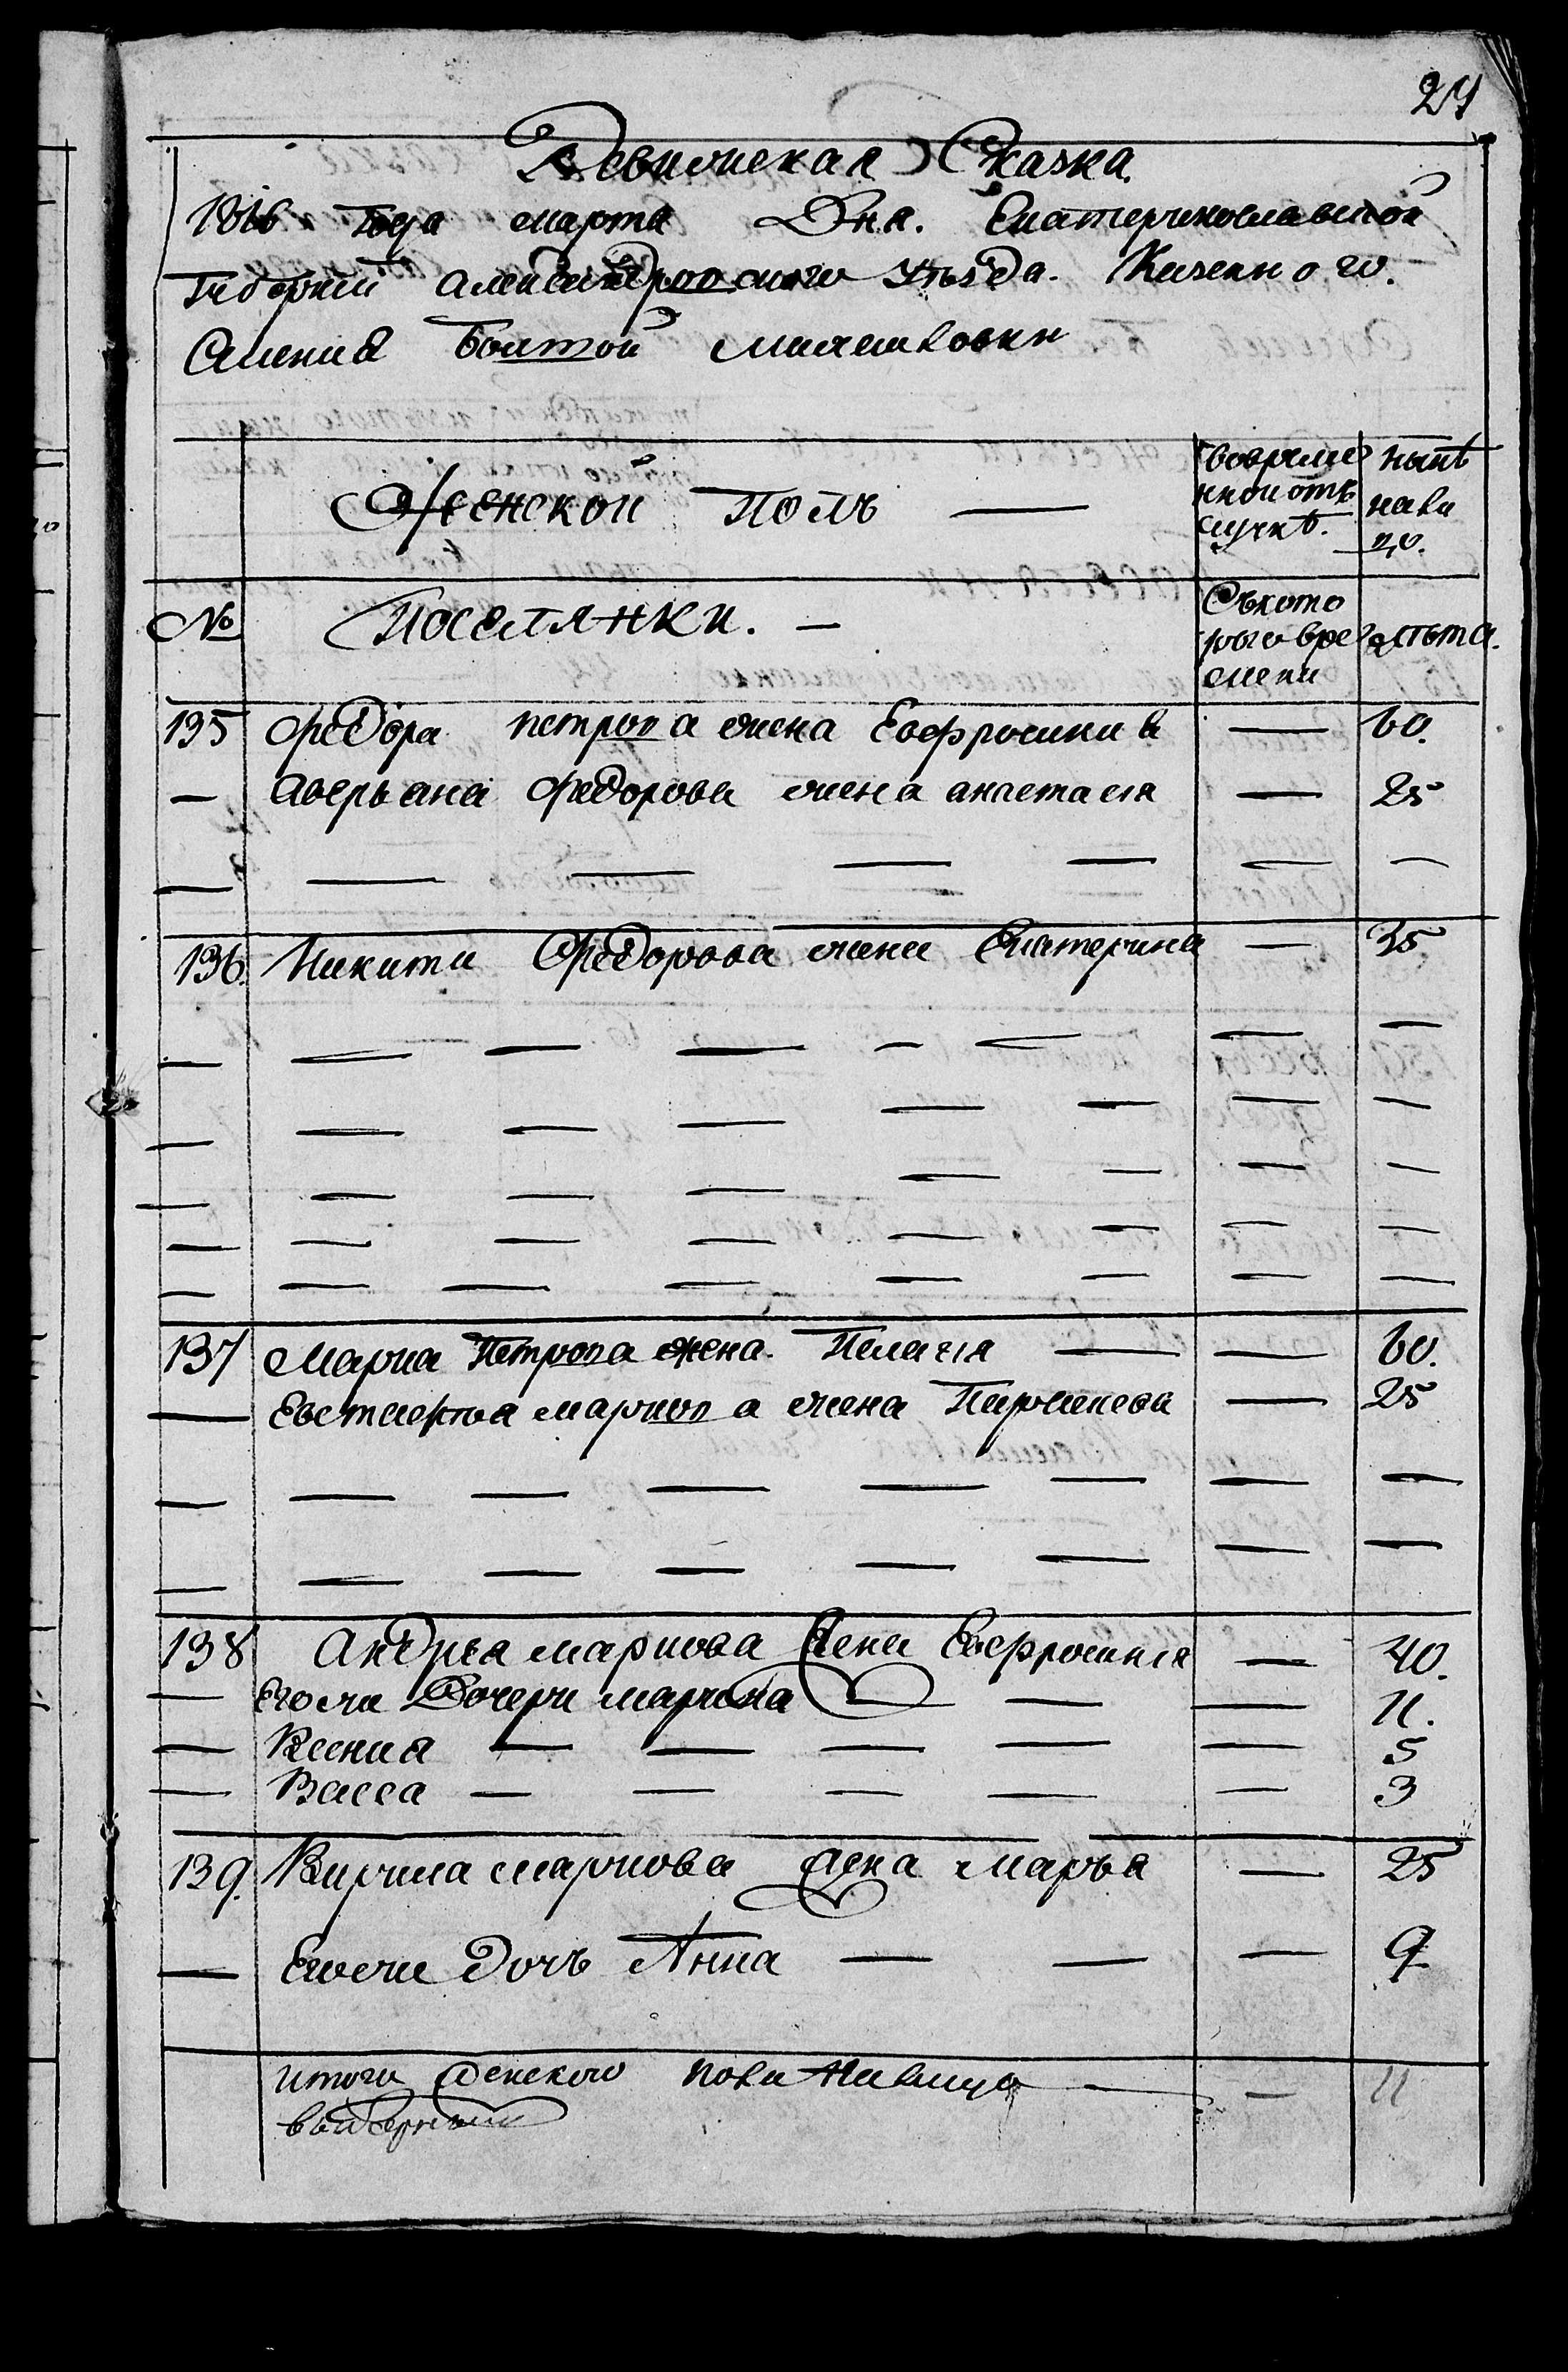 24
Ревижская Сказка.
1816 Года марта Дня. Екатеринославской
Губернии Александровского уъзда. Казенного.
Селения Болтой
Женской Полъ — вовреме нной отлучкѣ. нынѣ на ли цо.
№ Поселянки. — Съкото рого вре мени лѣта.
135 Федора петрова жена Евфросиния — 60.
— Аверьяна Федорова жена анастасия — 25
— — — — — — —
136. Никити Федорова жена Екатерина — 35
— — — — — — — —
— — — — — — — —
— — — — — — — —
— — — — — — — —
— — — — — — — —
137 Марка Петрова жена. Пелагия — — 60.
— Евстафия маркова жена — 25
— — — — — — — —
— — — — — — — —
138 Андрѣя маркова жена Евфросиния — 40.
— Егоже Дочери марина — — — 11.
— Ксения — — — — — 5
— Васса — — — — — 3
139. Кирила маркова жена марья — 25
— Егоже Дочь Анна — — — 9
итого женского пола наличцо — — 11